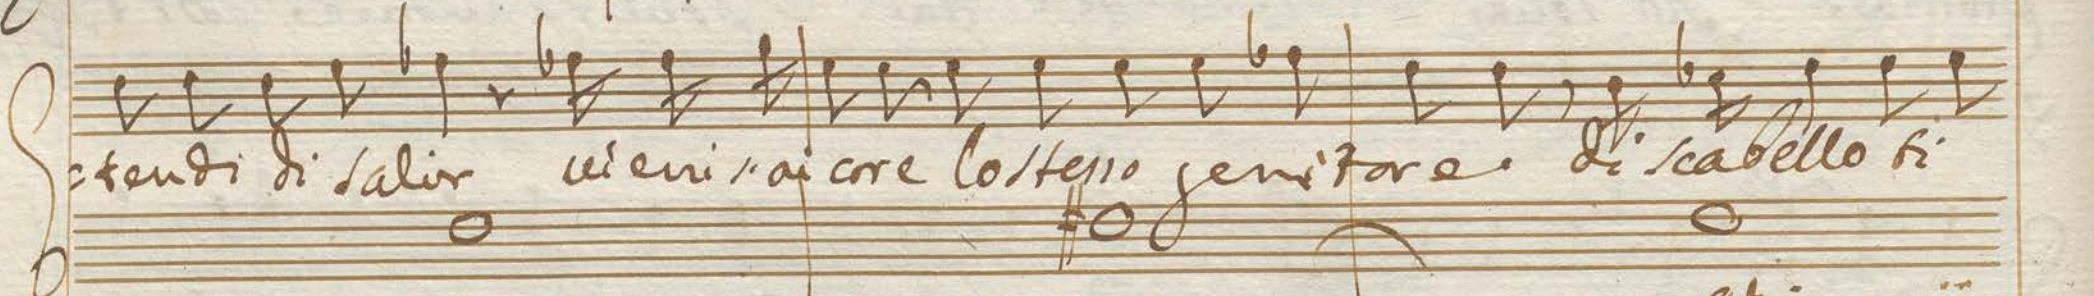 ctendi di salir vieni s'ai core lo stesso genitore. di scabello ti